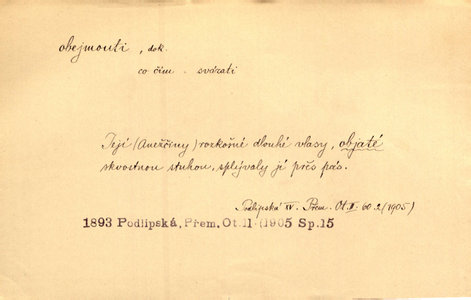 obejmouti, dok.
co čím. svázati
Její (Anežčiny) rozkošné dlouhé vlasy, objaté
skvostnou stuhou, splývaly jí přes pás.
Podlipská XV. Přem. Ot. II 60.2 (1905)
1893 Podlipská, Přem. Ot. II (1905 Sp. 15